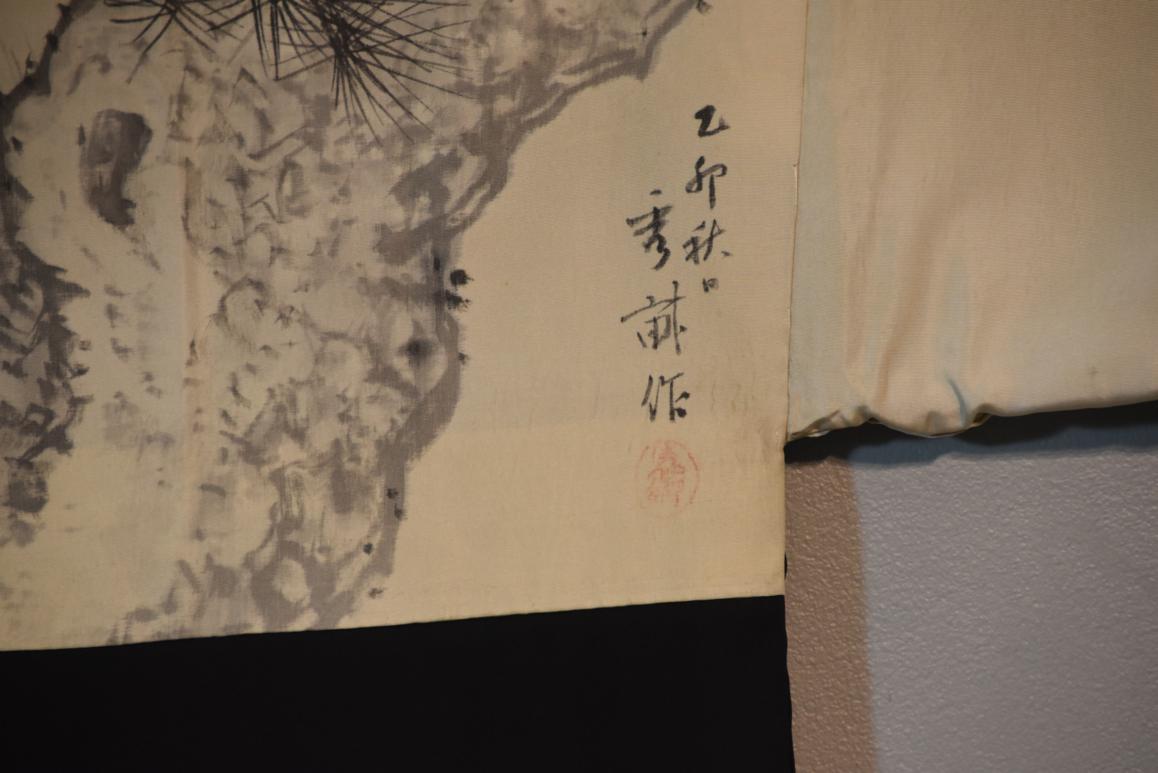 乙卯秋日
秀詠作